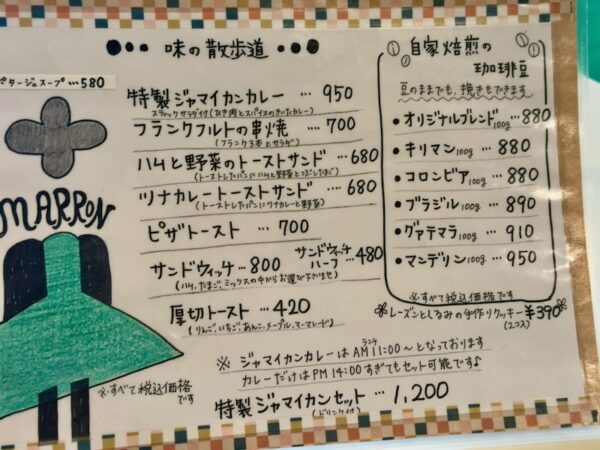 味の散歩道
ポタージュスープ…580
MARRON
特製ジャマイカンカレー … 950
スティックサラダ付(ひき肉とスパイスのきいたカレー)
フランクフルトの串焼 … 700
(フランク3本とサラダ)
ハムと野菜のトーストサンド …680
(トーストしたパンにハムと野菜とつぶしたまご)
ツナカレートーストサンド …680
(トーストしたパンにツナカレーと野菜)
ピザトースト … 700
サンドウィッチ …800
サンドウィッチ
ハーフ …480
(ハム、たまご、ミックスの中からお選び下さいませ)
厚切トースト … 420
(りんご、いちご、あんこ、メープル、マーマレード)
※ ジャマイカンカレーはAM11:00〜となっております
ランチ
カレーだけはPM14:00すぎてもセット可能です♪
特製ジャマイカンセット … 1,200
(ドリンク付)
※すべて税込価格
です
自家焙煎の
珈琲豆
豆のままでも、挽きもできます
・オリジナルブレンド100g …880
・キリマン100g … 880
・コロンビア100g … 880
・ブラジル100g … 890
・グァテマラ100g … 910
・マンデリン100g … 950
※すべて税込価格です
レーズンとくるみの手作りクッキー ¥390
(2コ入)